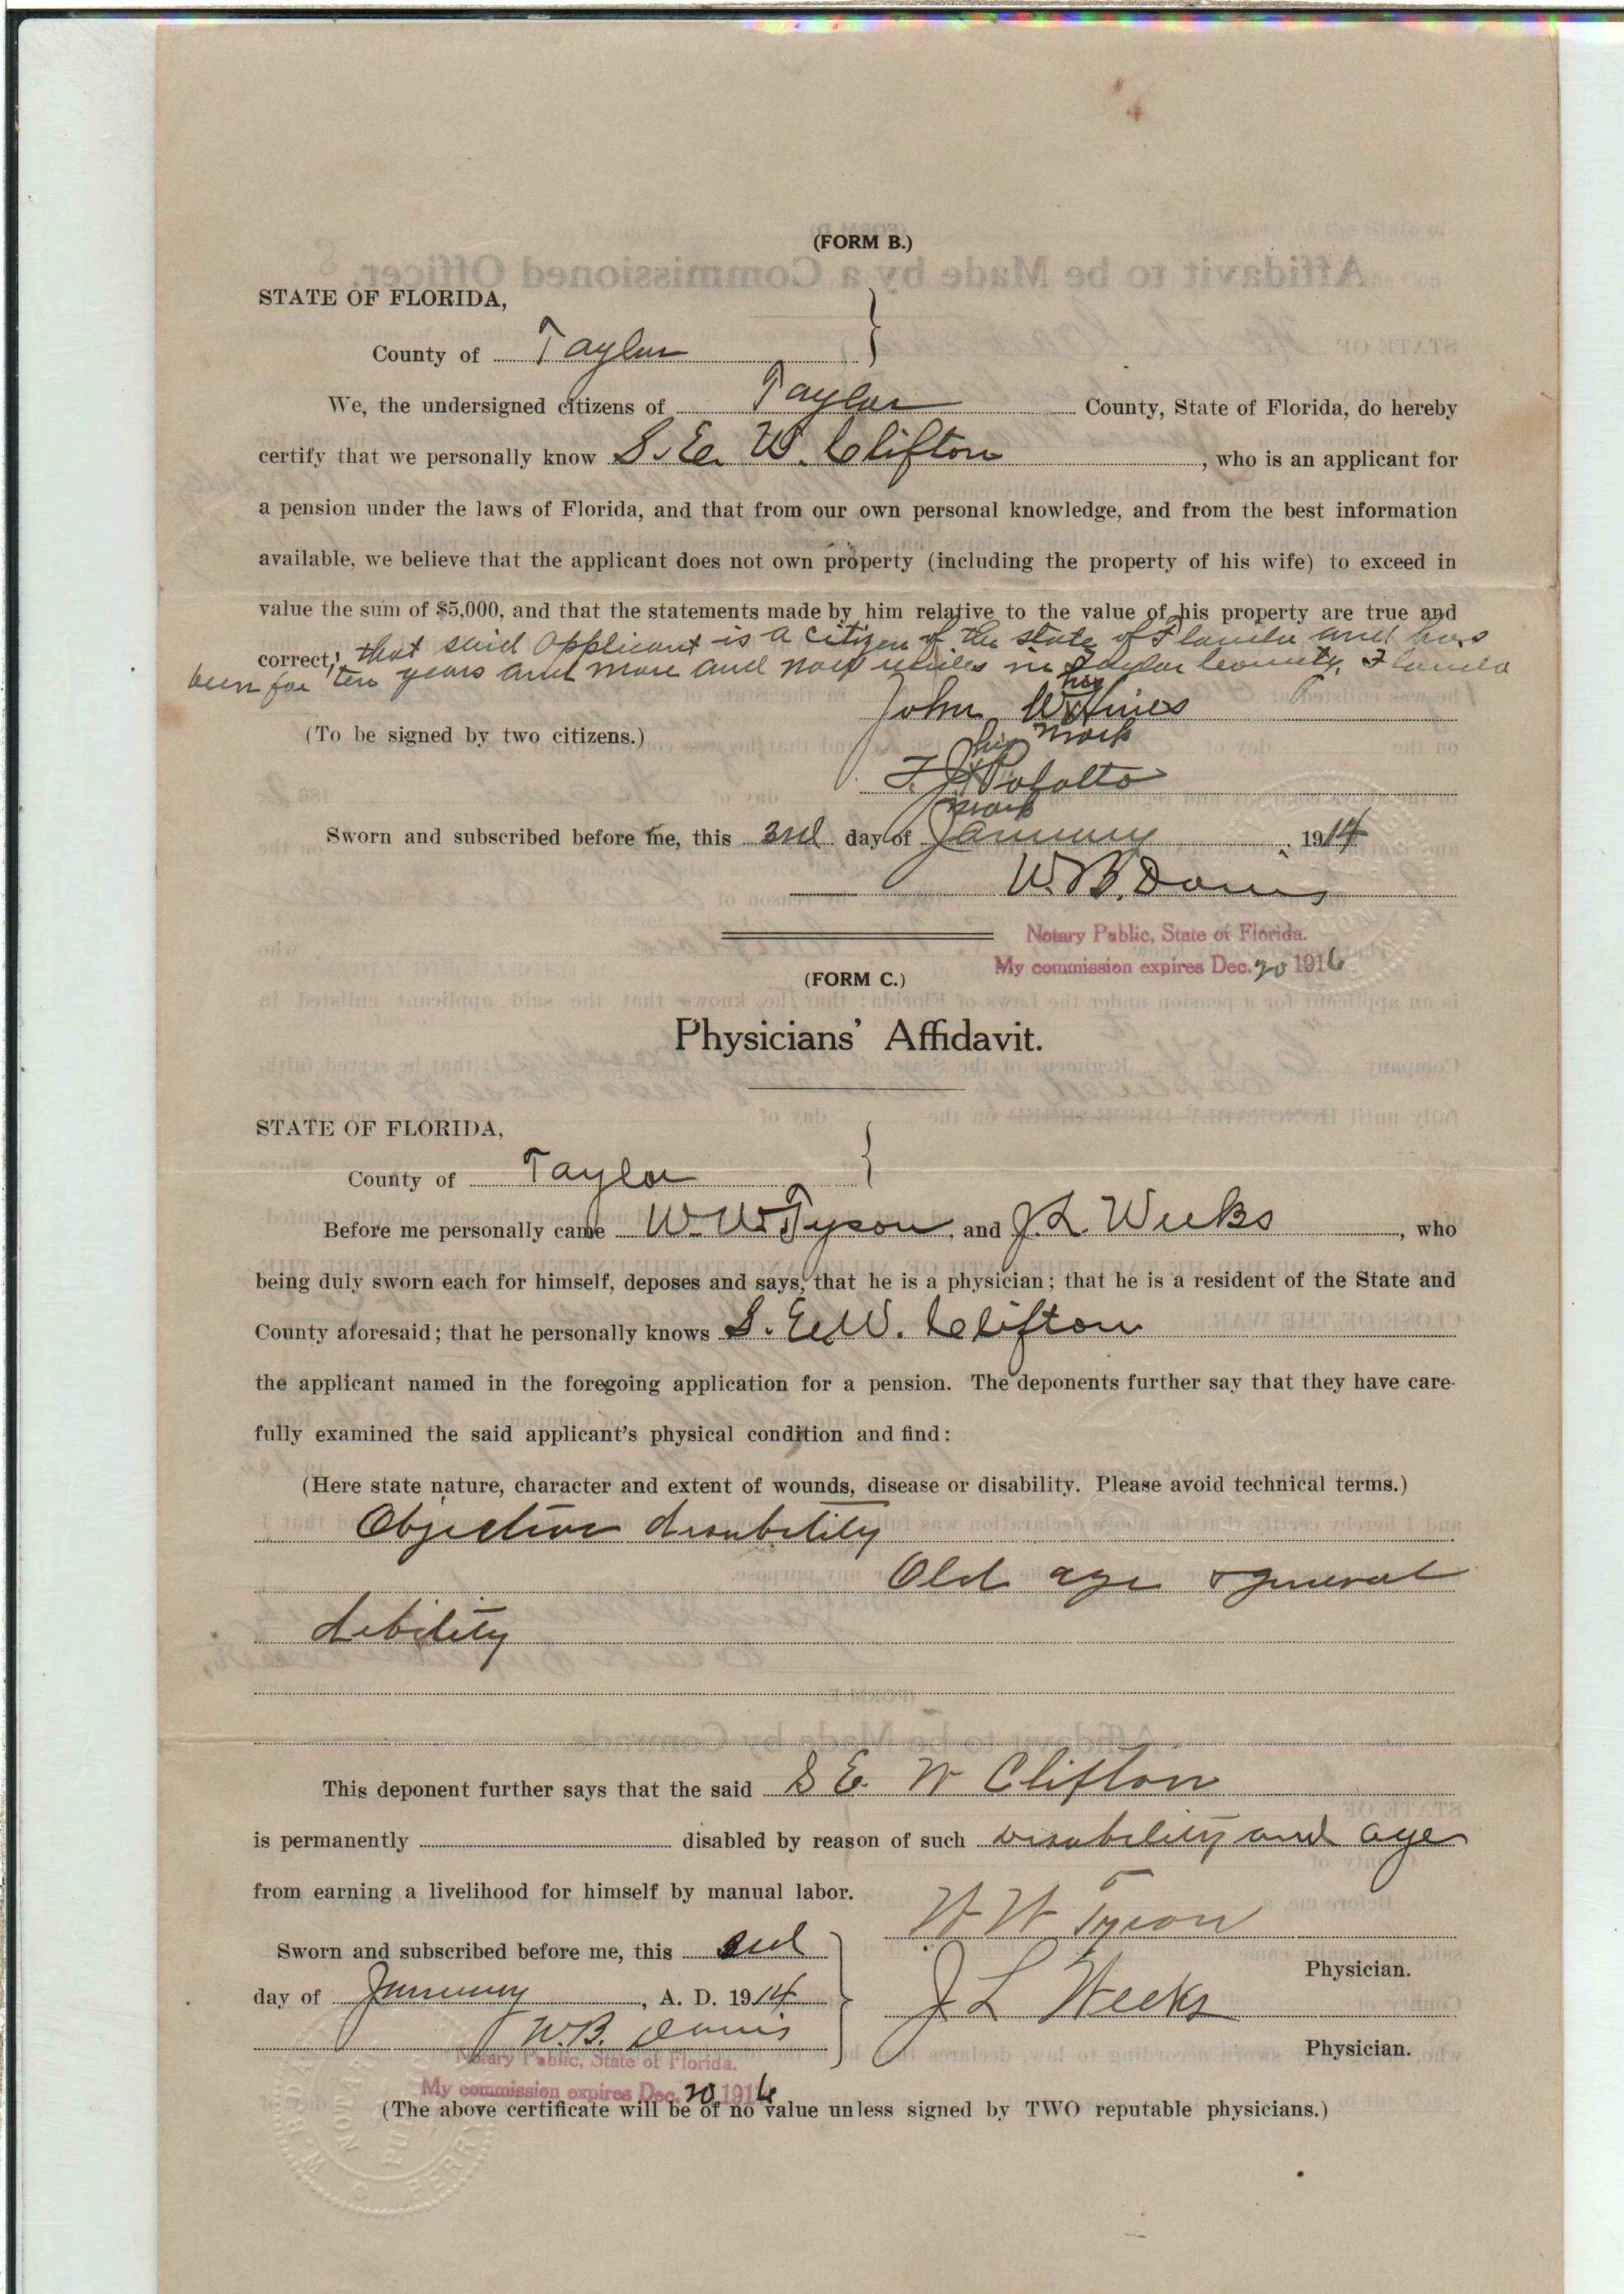 (FORM B.)
STATE OF FLORIDA,
County of Taylor
We, the undersigned citizens of Taylor County, State of Florida, do hereby
certify that we personally know S. E. W. Clifton, who is an applicant for
a pension under the laws of Florida, and that from our own personal knowledge, and from the best information
available, we believe that the applicant does not own property (including the property of his wife) to exceed in
value the sum of $5,000, and that the statements made by him relative to the value of his property are true and
correct, that said applicant is a citizen of the state of Florida and has
been for ten years and more and now resides in Taylor County, Florida
his
John W X Hines
mark
(To be signed by two citizens.)
his
F. J. X
mark
Sworn and subscribed before me, this 3rd day of January 1914
W. B. Davis
Notary Public, State of Florida.
My commission expires Dec. 20 1916
(FORM C.)
Physicians' Affidavit.
STATE OF FLORIDA,
County of Taylor
Before me personally came W. W. Tyson, and J. L. Weeks, who
being duly sworn each for himself, deposes and says, that he is a physician; that he is a resident of the State and
County aforesaid; that he personally knows S. E. W. Clifton
the applicant named in the foregoing application for a pension. The deponents further say that they have care-
fully examined the said applicant's physical condition and find:
(Here state nature, character and extent of wounds, disease or disability. Please avoid technical terms.)
Objective disability
Old age & general
debility
This deponent further says that the said S E. W Clifton
is permanently disabled by reason of such disability and age
from earning a livelihood for himself by manual labor.
W W Tyson
Physician.
Sworn and subscribed before me, this 3rd
day of January, A. D. 1914
J L Weeks
Physician.
W. B. Davis
Notary Public, State of Florida.
My commission expires Dec. 20 1916
(The above certificate will be of no value unless signed by TWO reputable physicians.)